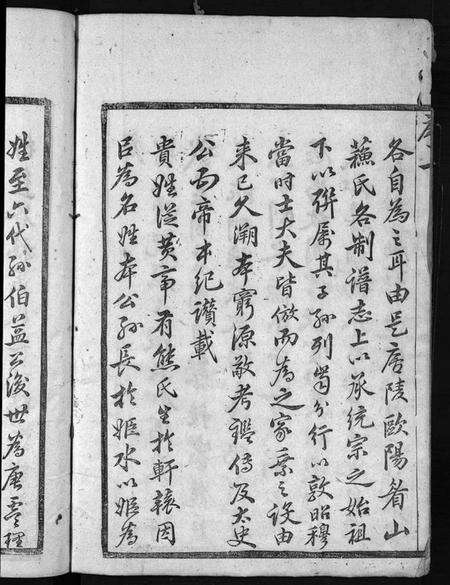 各自為之耳由是廬陵歐陽眉山
蘇氏各制譜志上以承統宗之始祖
下以聯屬其子孫列當分行以敦昭穆
當时士大夫皆倣而為之家乘之設由
来已久溯本窮源敬考鑑傅及太史
公五帝本紀讚載
貴姓従黄帝有熊氏生於軒轅因
臣為名姓本公孫長於姬水以姬為
姓至六代孫伯益公後世為唐虞理